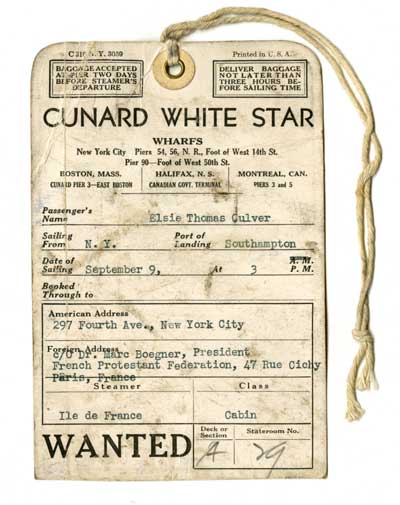 C 310 N. Y. 3059 Printed in U. S. A.
BAGGAGE ACCEPTED
AT PIER TWO DAYS
BEFORE STEAMER'S
DEPARTURE
DELIVER BAGGAGE
NOT LATER THAN
THREE HOURS BE-
FORE SAILING TIME
CUNARD WHITE STAR
WHARFS
New York City Piers 54, 56, N. R., Foot of West 14th St.
Pier 90—Foot of West 50th St.
BOSTON, MASS.
CUNARD PIER 3—EAST BOSTON
HALIFAX, N. S.
CANADIAN GOVT. TERMINAL
MONTREAL, CAN.
PIERS 3 and 5
Passenger's
Name Elsie Thomas Culver
Sailing
From N. Y.
Port of
Landing Southampton
Date of
Sailing September 9, At 3 A. M.
P. M.
Booked
Through to
American Address
297 Fourth Ave., New York City
Foreign Address
c/o Dr. Marc Boegner, President
French Protestant Federation, 47 Rue Cichy
Paris, France
Steamer Class
Ile de France Cabin
WANTED
Deck or
Section
A
Stateroom No.
29